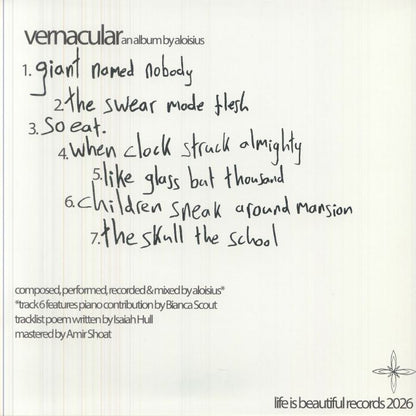 vernacular an album by aloisius
1. giant named nobody
2. the swear made flesh
3. So eat.
4. when clock struck almighty
5. like glass but thousand
6. children sneak around mansion
7. the skull the school
composed, performed, recorded & mixed by aloisius*
*track 6 features piano contribution by Bianca Scout
tracklist poem written by Isaiah Hull
mastered by Amir Shoat
life is beautiful records 2026